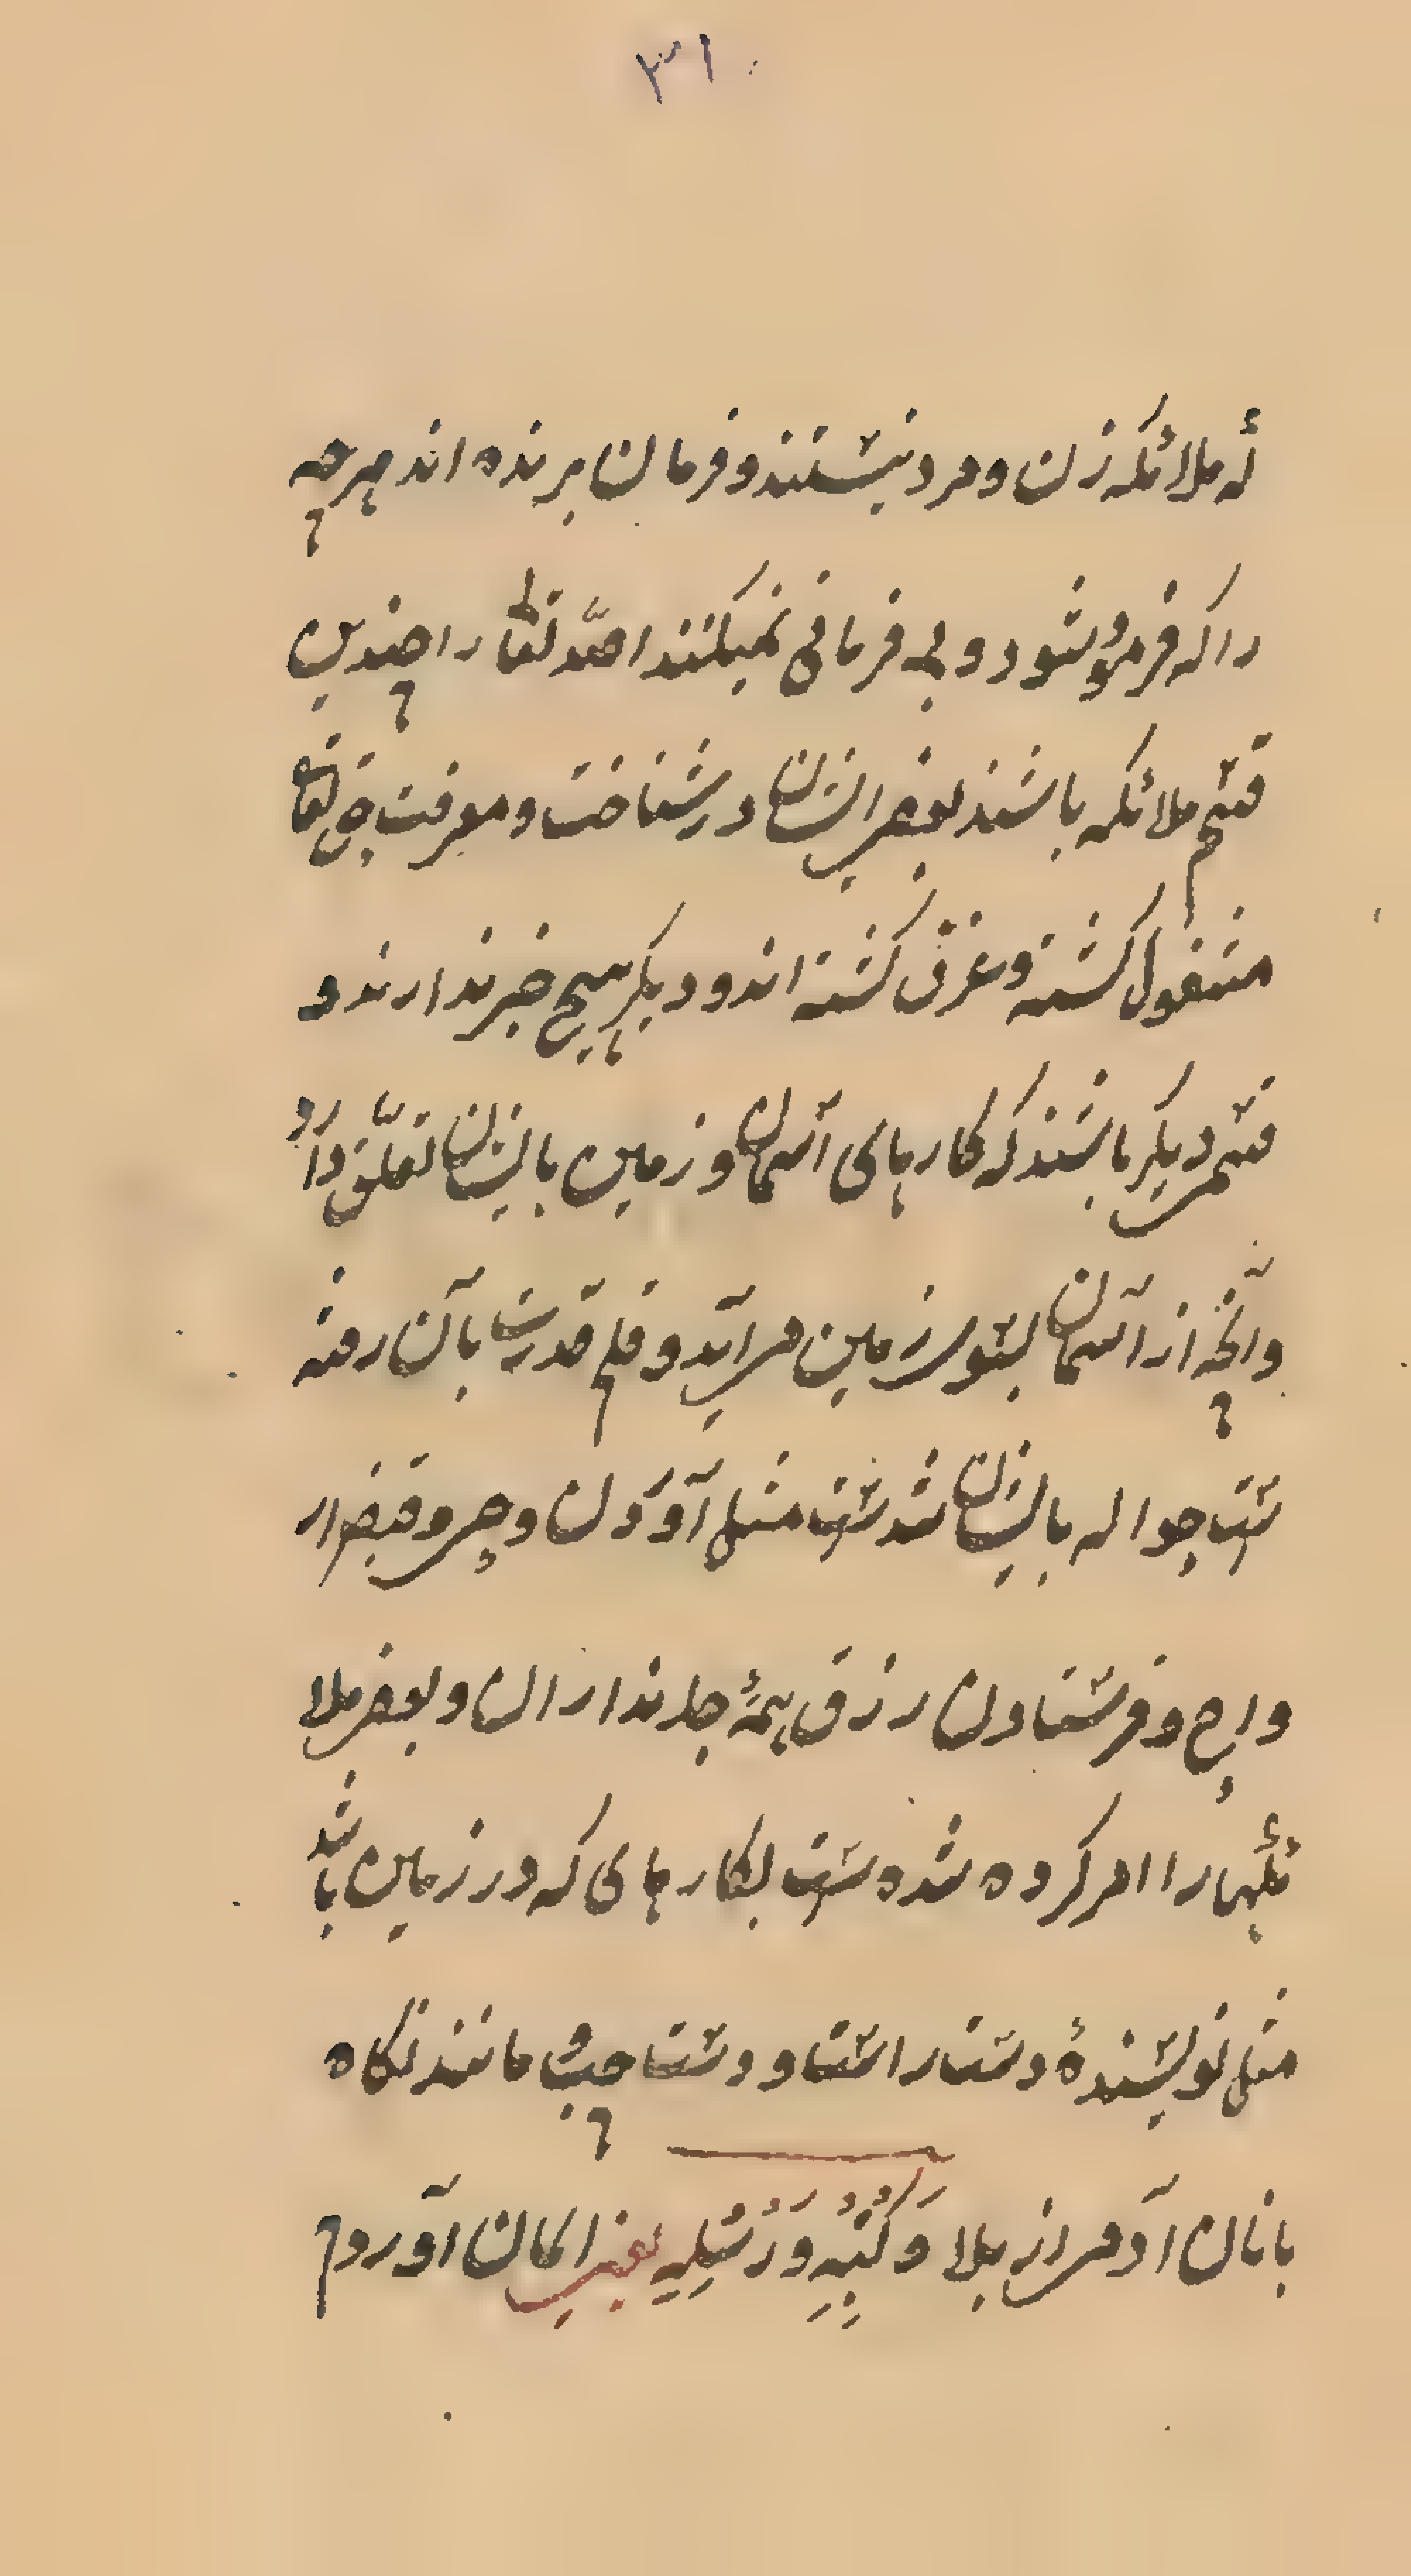 ۳۱
ئه ملائکه زن و مرد نیستند و فرمان برنده اند هرچه
را که فرموده شود و بی فرمانی نمیکنند الله تعالی را چندین
قسم ملائکه باشند بعضی ایشان در شناخت و معرفت حق تعالی
مشغول گشته و غرق گشته اند و دیگر هیچ خبر ندارند و
قسمی دیگر باشند که کارهای آسمان و زمین بایشان تعلق دارد
و آنچه از آسمان بسوی زمین می آید و قلم قدرت بآن رفته
ست حواله بایشان شدست مثل آوردن وحی و قبض ار
واح و فرستادن رزق همهٔ جانداران و بعضی ملا
ئکهها را امر کرده شده ست بکارهای که در زمین باشد
مثل نویسندهٔ دست راست و دست چپ و مانند نگاه
بانان آدمی از بلا وَكُتُبِهِ وَرُسُلِهِ یعنی ایمان آوردم